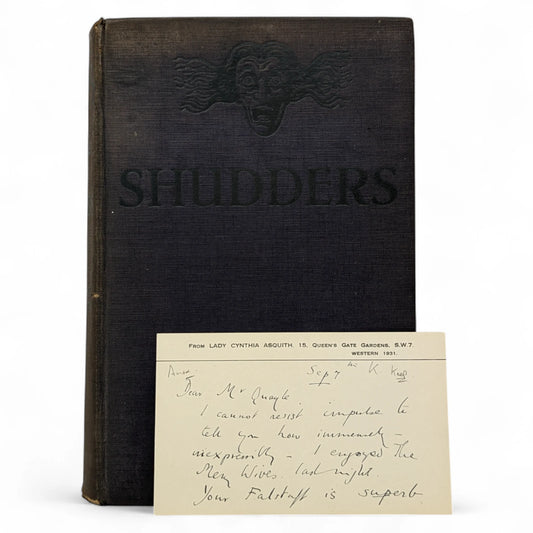 SHUDDERS
FROM LADY CYNTHIA ASQUITH. 15, QUEEN'S GATE GARDENS, S.W.7.
WESTERN 1931.
Sep 7th K Keep
Dear Mr Quayle
I cannot resist impulse to
tell you how immensely –
inexpressibly – I enjoyed The
Merry Wives. last night.
Your Falstaff is superb